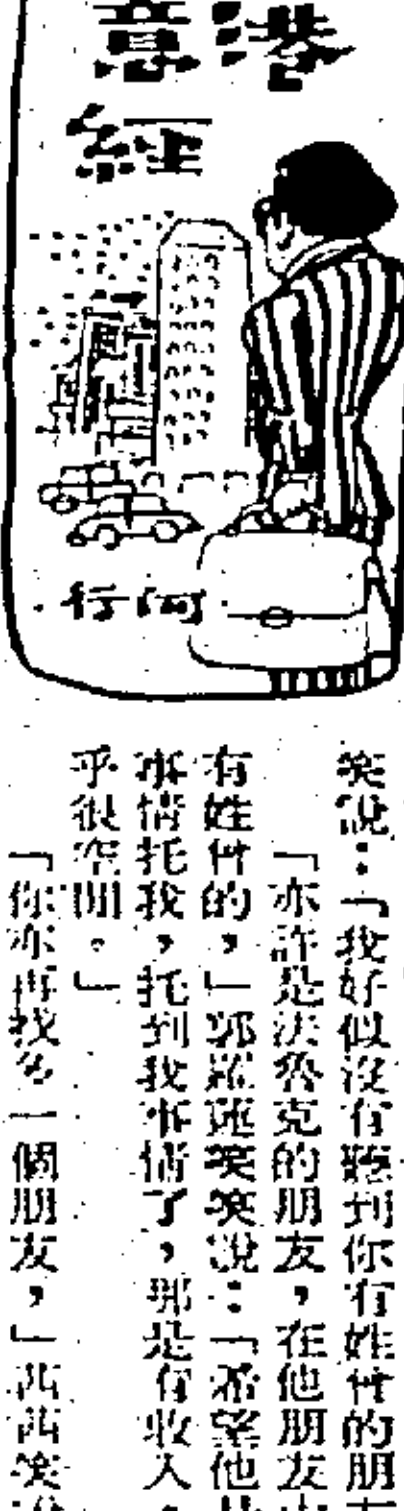 港
意
經
何行
笑說：「我好似沒有聽到你有姓什的朋友
「亦許是法魯克的朋友，在他朋友
有姓什的，」郭羅蓮笑笑說：「希望他
事情托我，托到我事情了，那是有收入，
乎很空閒。」
「你亦再找多一個朋友，」茜茜笑說